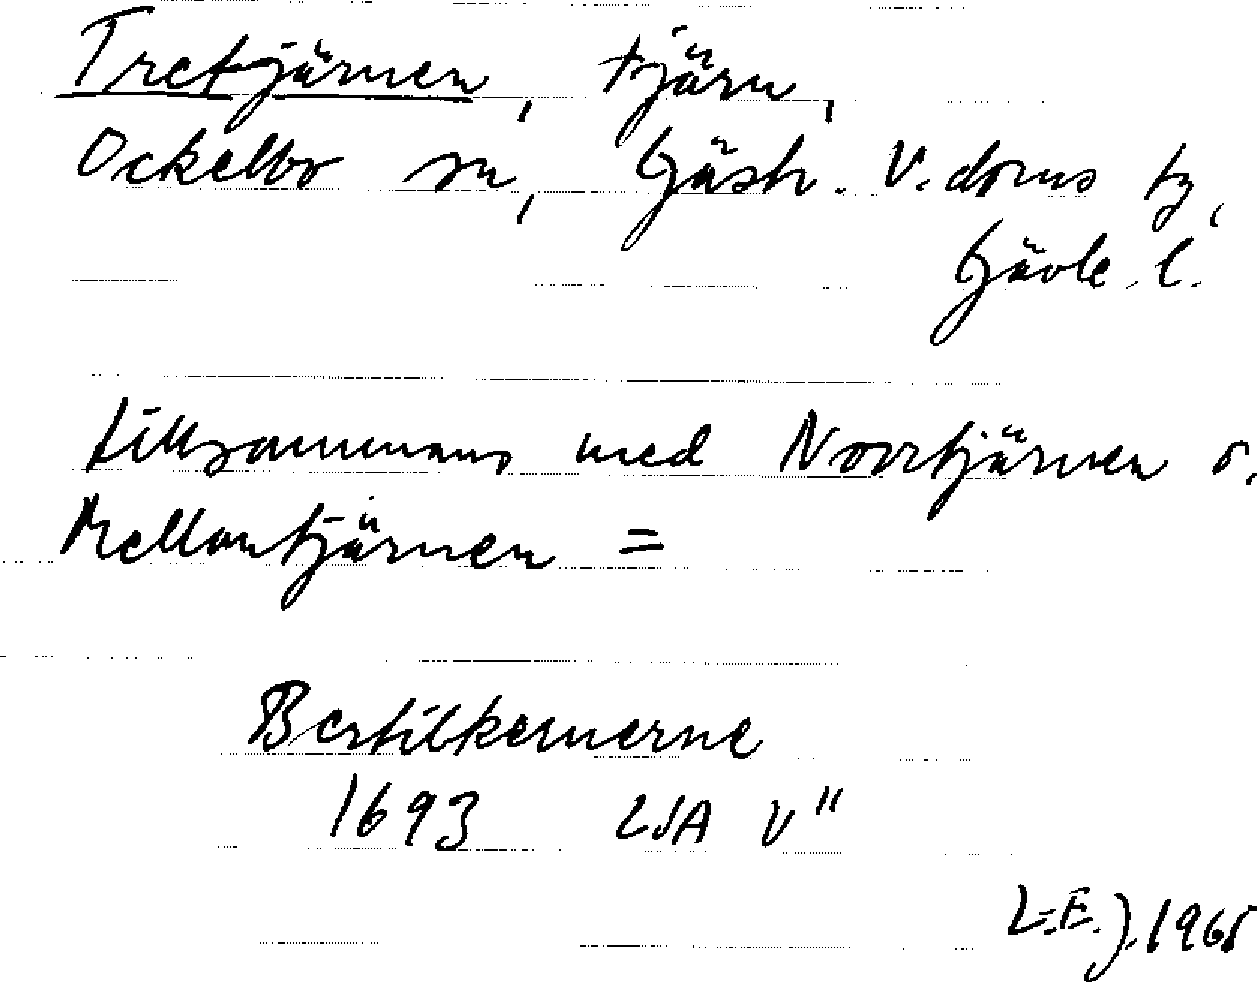 Tretjärnen, tjärn,
Ockelbo sn, Gästr. V. doms tg,
Gävle. l.
tillsammans med Norrtjärnen o.
Mellantjärnen =
Bertilkernerne
1693 LSA V"
L.E.J. 1965